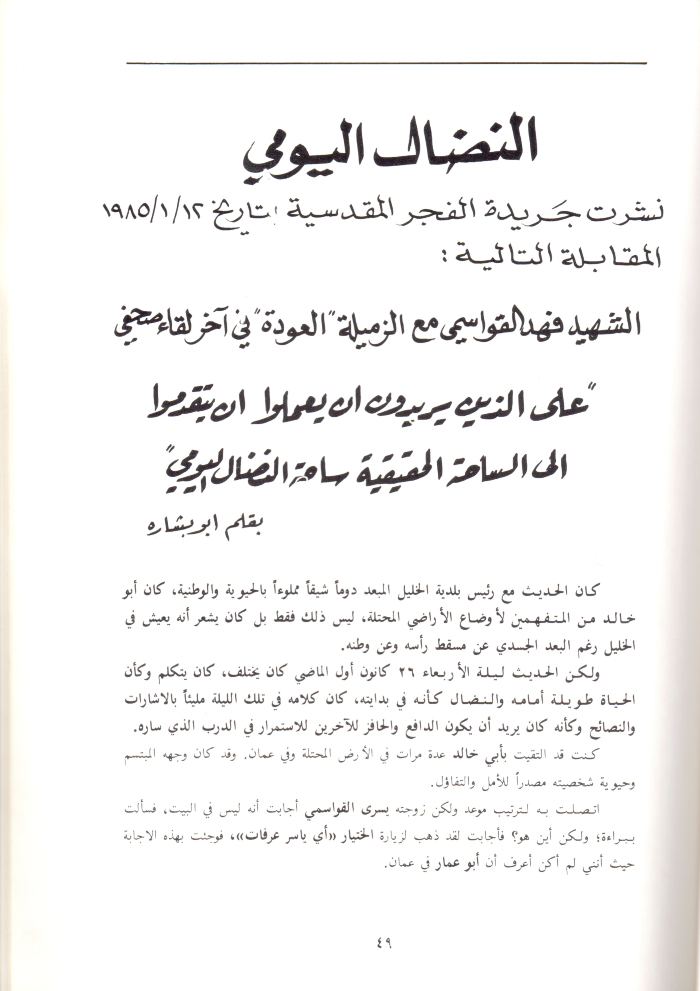 النضال اليومي
نشرت جَريدة الفجر المقدسية بتاريخ ١٩٨٥/١/١٢
المقابلة التالية :
الشهيد فهد القواسمي مع الزميلة "العودة" في آخر لقاء صحفي
"على الذين يريدون ان يعملوا ان يتقدموا
الى الساحة الحقيقية ساحة النضال اليومي"
بقلم ابو بشاره
كان الحديث مع رئيس بلدية الخليل المبعد دوماً شيقاً مملوءاً بالحيوية والوطنية، كان أبو
خالد من المتفهمين لأوضاع الأراضي المحتلة، ليس ذلك فقط بل كان يشعر أنه يعيش في
الخليل رغم البعد الجسدي عن مسقط رأسه وعن وطنه.
ولكن الحديث ليلة الأربعاء ٢٦ كانون أول الماضي كان يختلف، كان يتكلم وكأن
الحياة طويلة أمامه والنضال كأنه في بدايته، كان كلامه في تلك الليلة مليئاً بالاشارات
والنصائح وكأنه كان يريد أن يكون الدافع والحافز للآخرين للاستمرار في الدرب الذي ساره.
كنت قد التقيت بأبي خالد عدة مرات في الأرض المحتلة وفي عمان. وقد كان وجهه المبتسم
وحيوية شخصيته مصدراً للأمل والتفاؤل.
اتصلت به لترتيب موعد ولكن زوجته يسرى القواسمي أجابت أنه ليس في البيت، فسألت
ببراءة؛ ولكن أين هو؟ فأجابت لقد ذهب لزيارة الختيار «أي ياسر عرفات»، فوجئت بهذه الاجابة
حيث أنني لم أكن أعرف أن أبو عمار في عمان.
٤٩